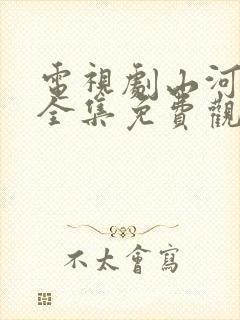 電視劇山河
全集免費觀
不太會寫